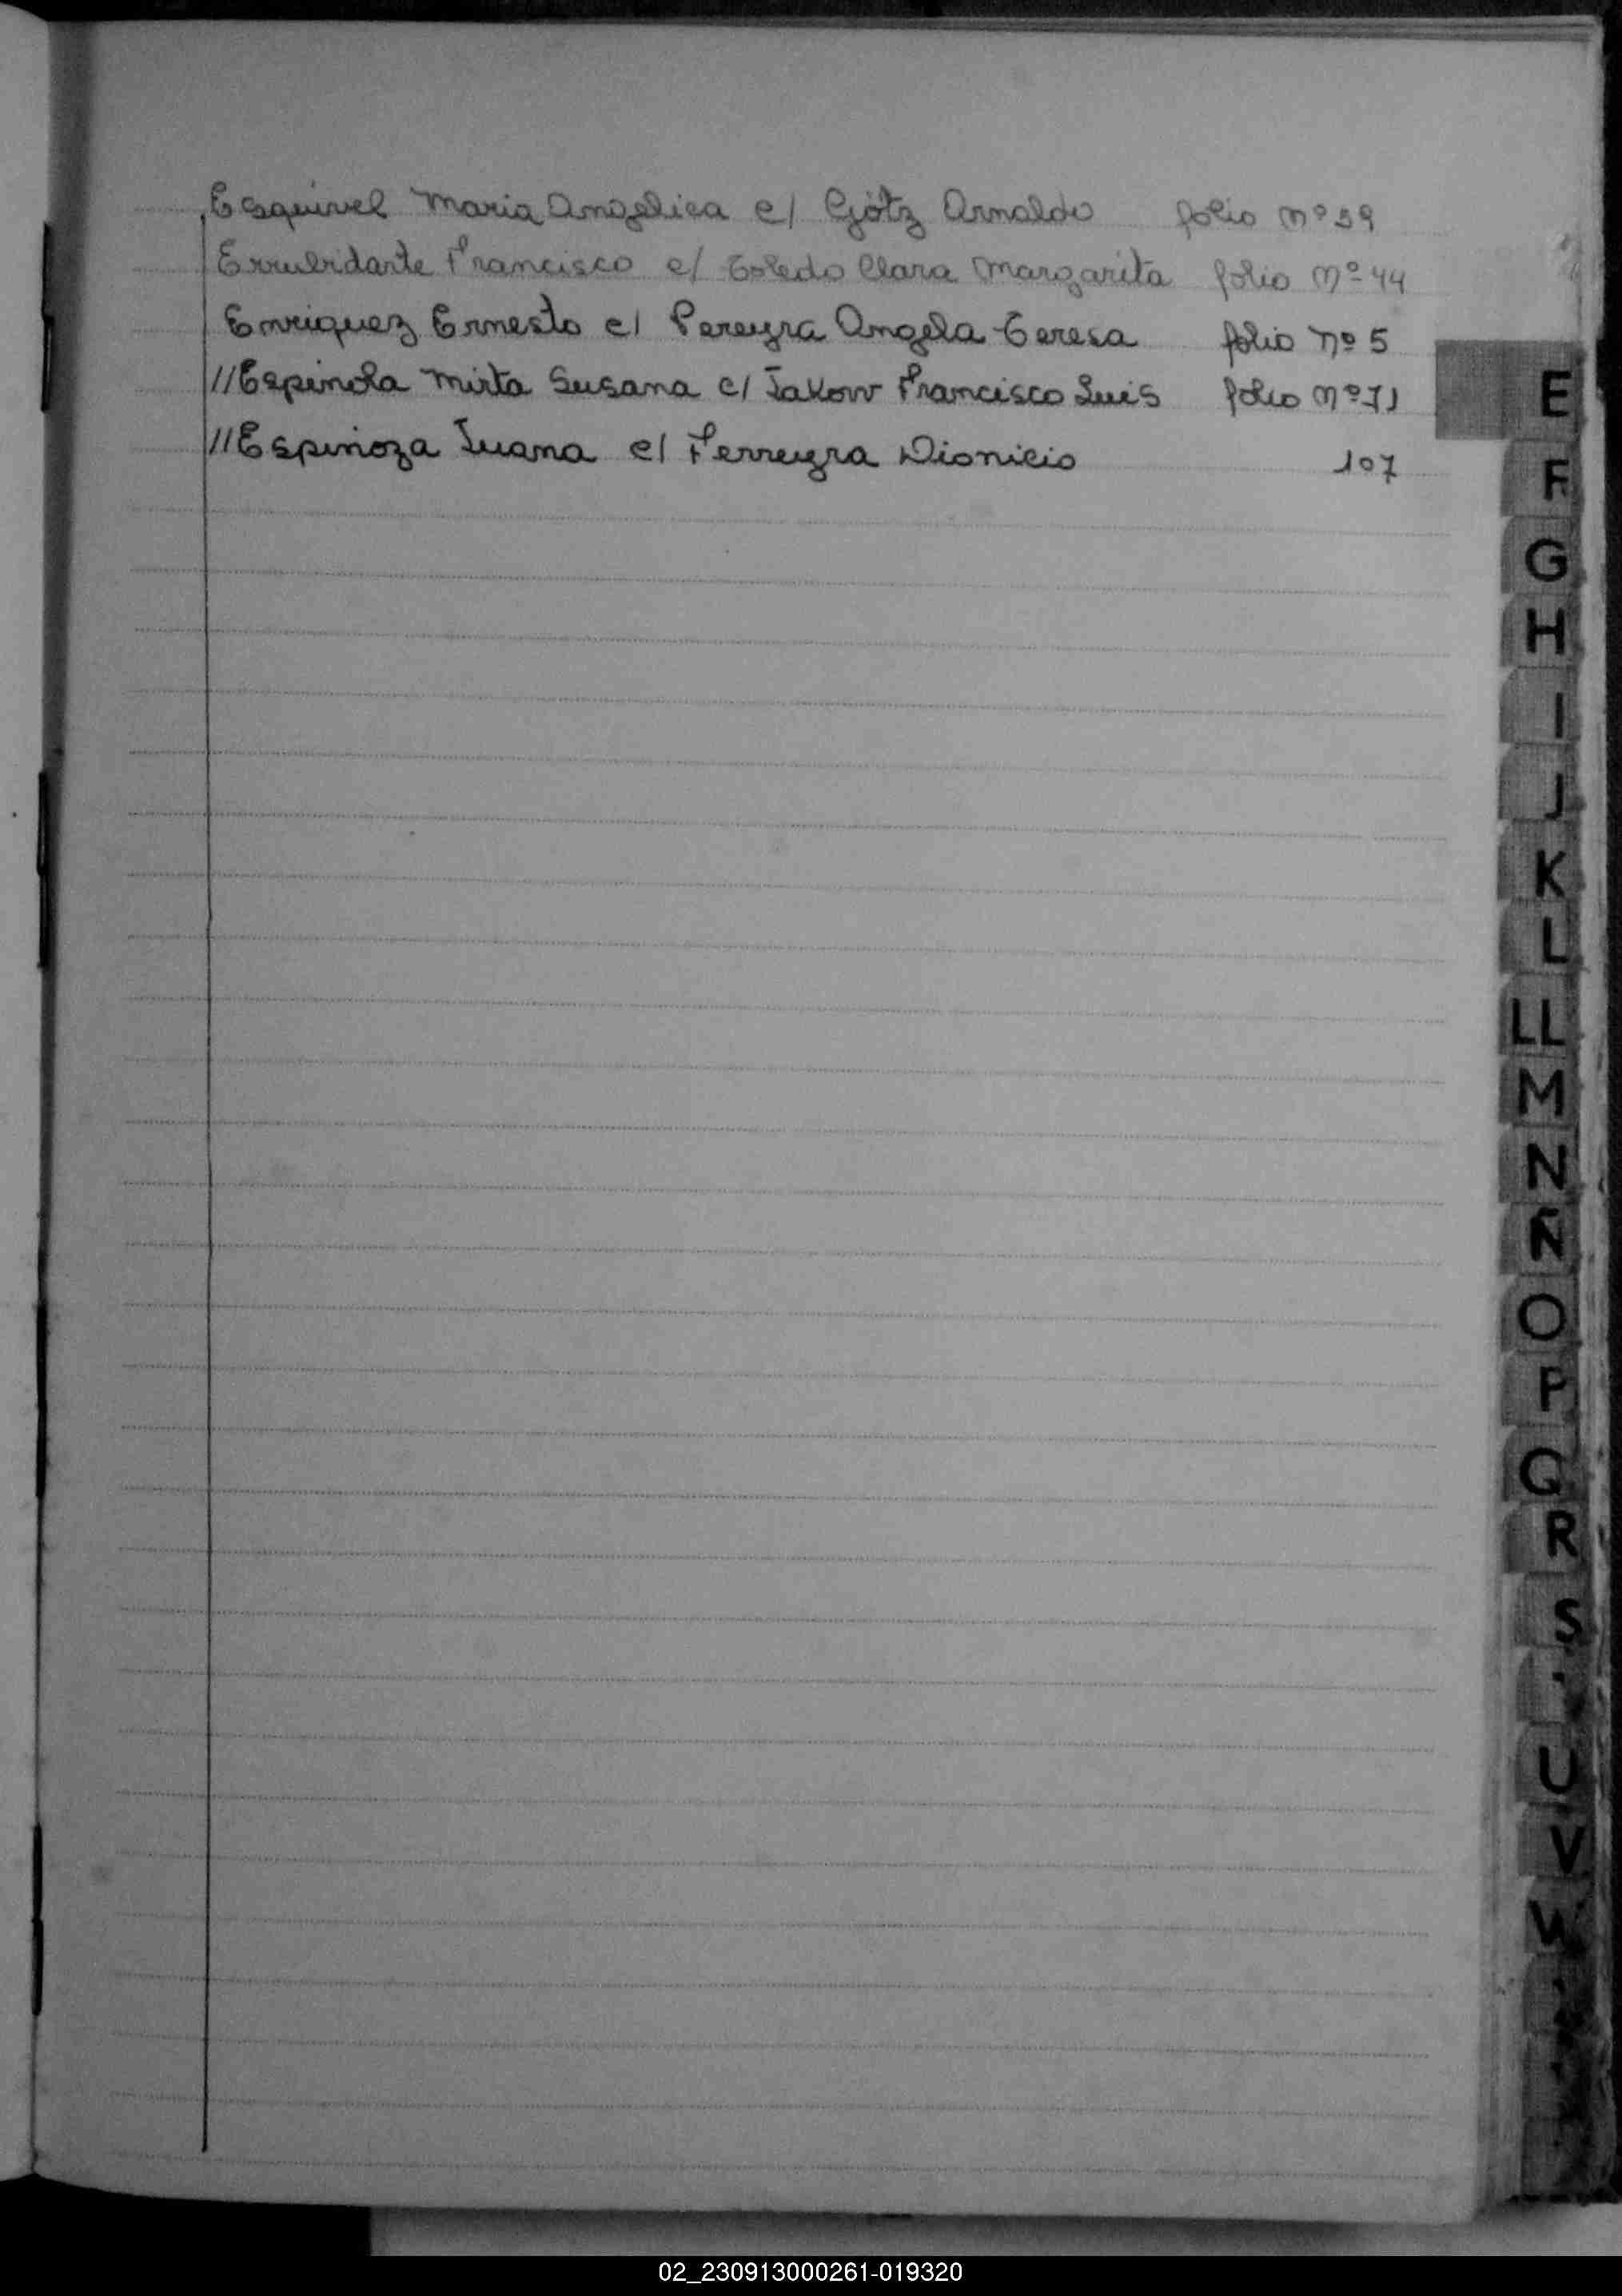 Esquivel Maria Angelica c/ Götz Arnaldo folio nº 39
Errubidarte Francisco c/ Toledo Clara Margarita folio nº 44
Enriquez Ernesto c/ Pereyra Angela Teresa folio nº 5
//Espinola Mirta Susana c/ Jakow Francisco Luis folio nº 71
//Espinoza Juana c/ Ferreyra Dionicio 107
E
F
G
H
I
J
K
L
LL
M
N
Ñ
O
P
Q
R
S
U
V
W
02_230913000261-019320